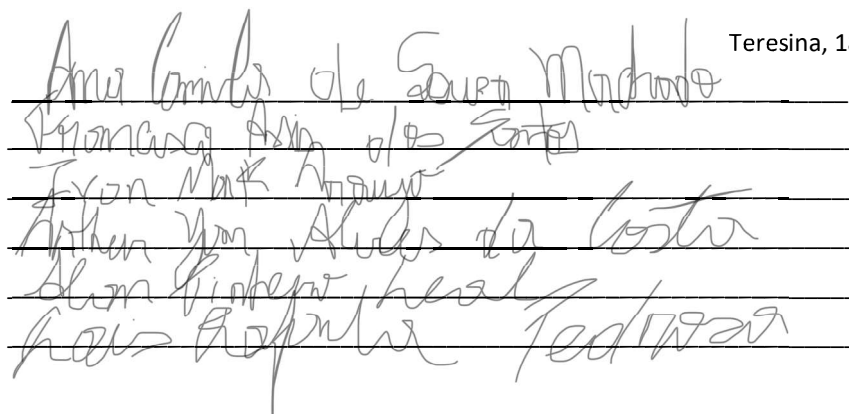 Teresina, 1
Ana Camila de Sousa Machado
Francisca Assis dos Santos
Ivon Max Araujo
Arthur Yan Alves da Costa
Alan Pinheiro Leal
Lais Rafaela Pedrosa